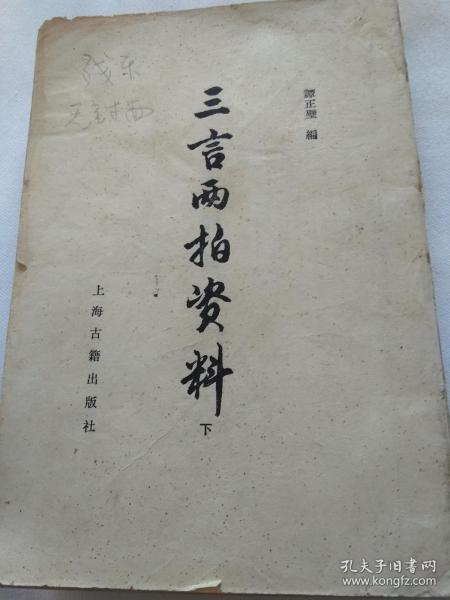 譚正璧 編
三言兩拍资料
下
上海古籍出版社
无封面
孔夫子旧书网
www.kongfz.com